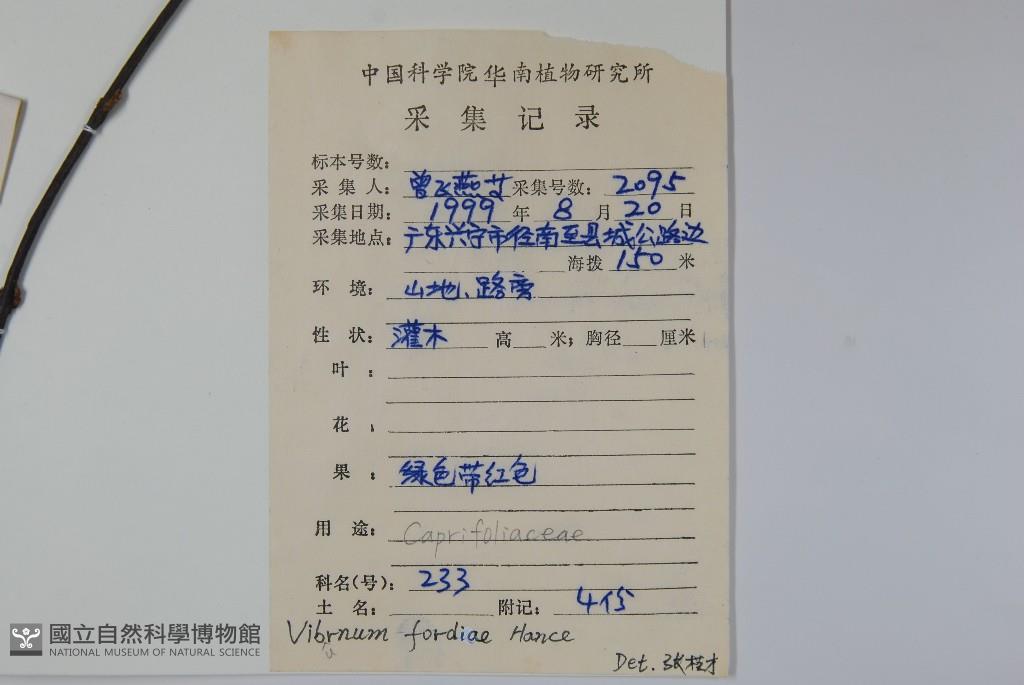 中国科学院华南植物研究所
采集记录
标本号数:
采集人: 曾飞燕 采集号数: 2095
采集日期: 1999 年 8 月 20 日
采集地点: 广东兴宁市径南至县城公路边
海拨 150 米
环境: 山地、路旁
性状: 灌木 高 米; 胸径 厘米
叶:
花:
果: 绿色带红色
用途: Caprifoliaceae
科名(号): 233
土名: 附记: 4份
Viburnum fordiae Hance
Det. 张桂才
國立自然科學博物館
NATIONAL MUSEUM OF NATURAL SCIENCE